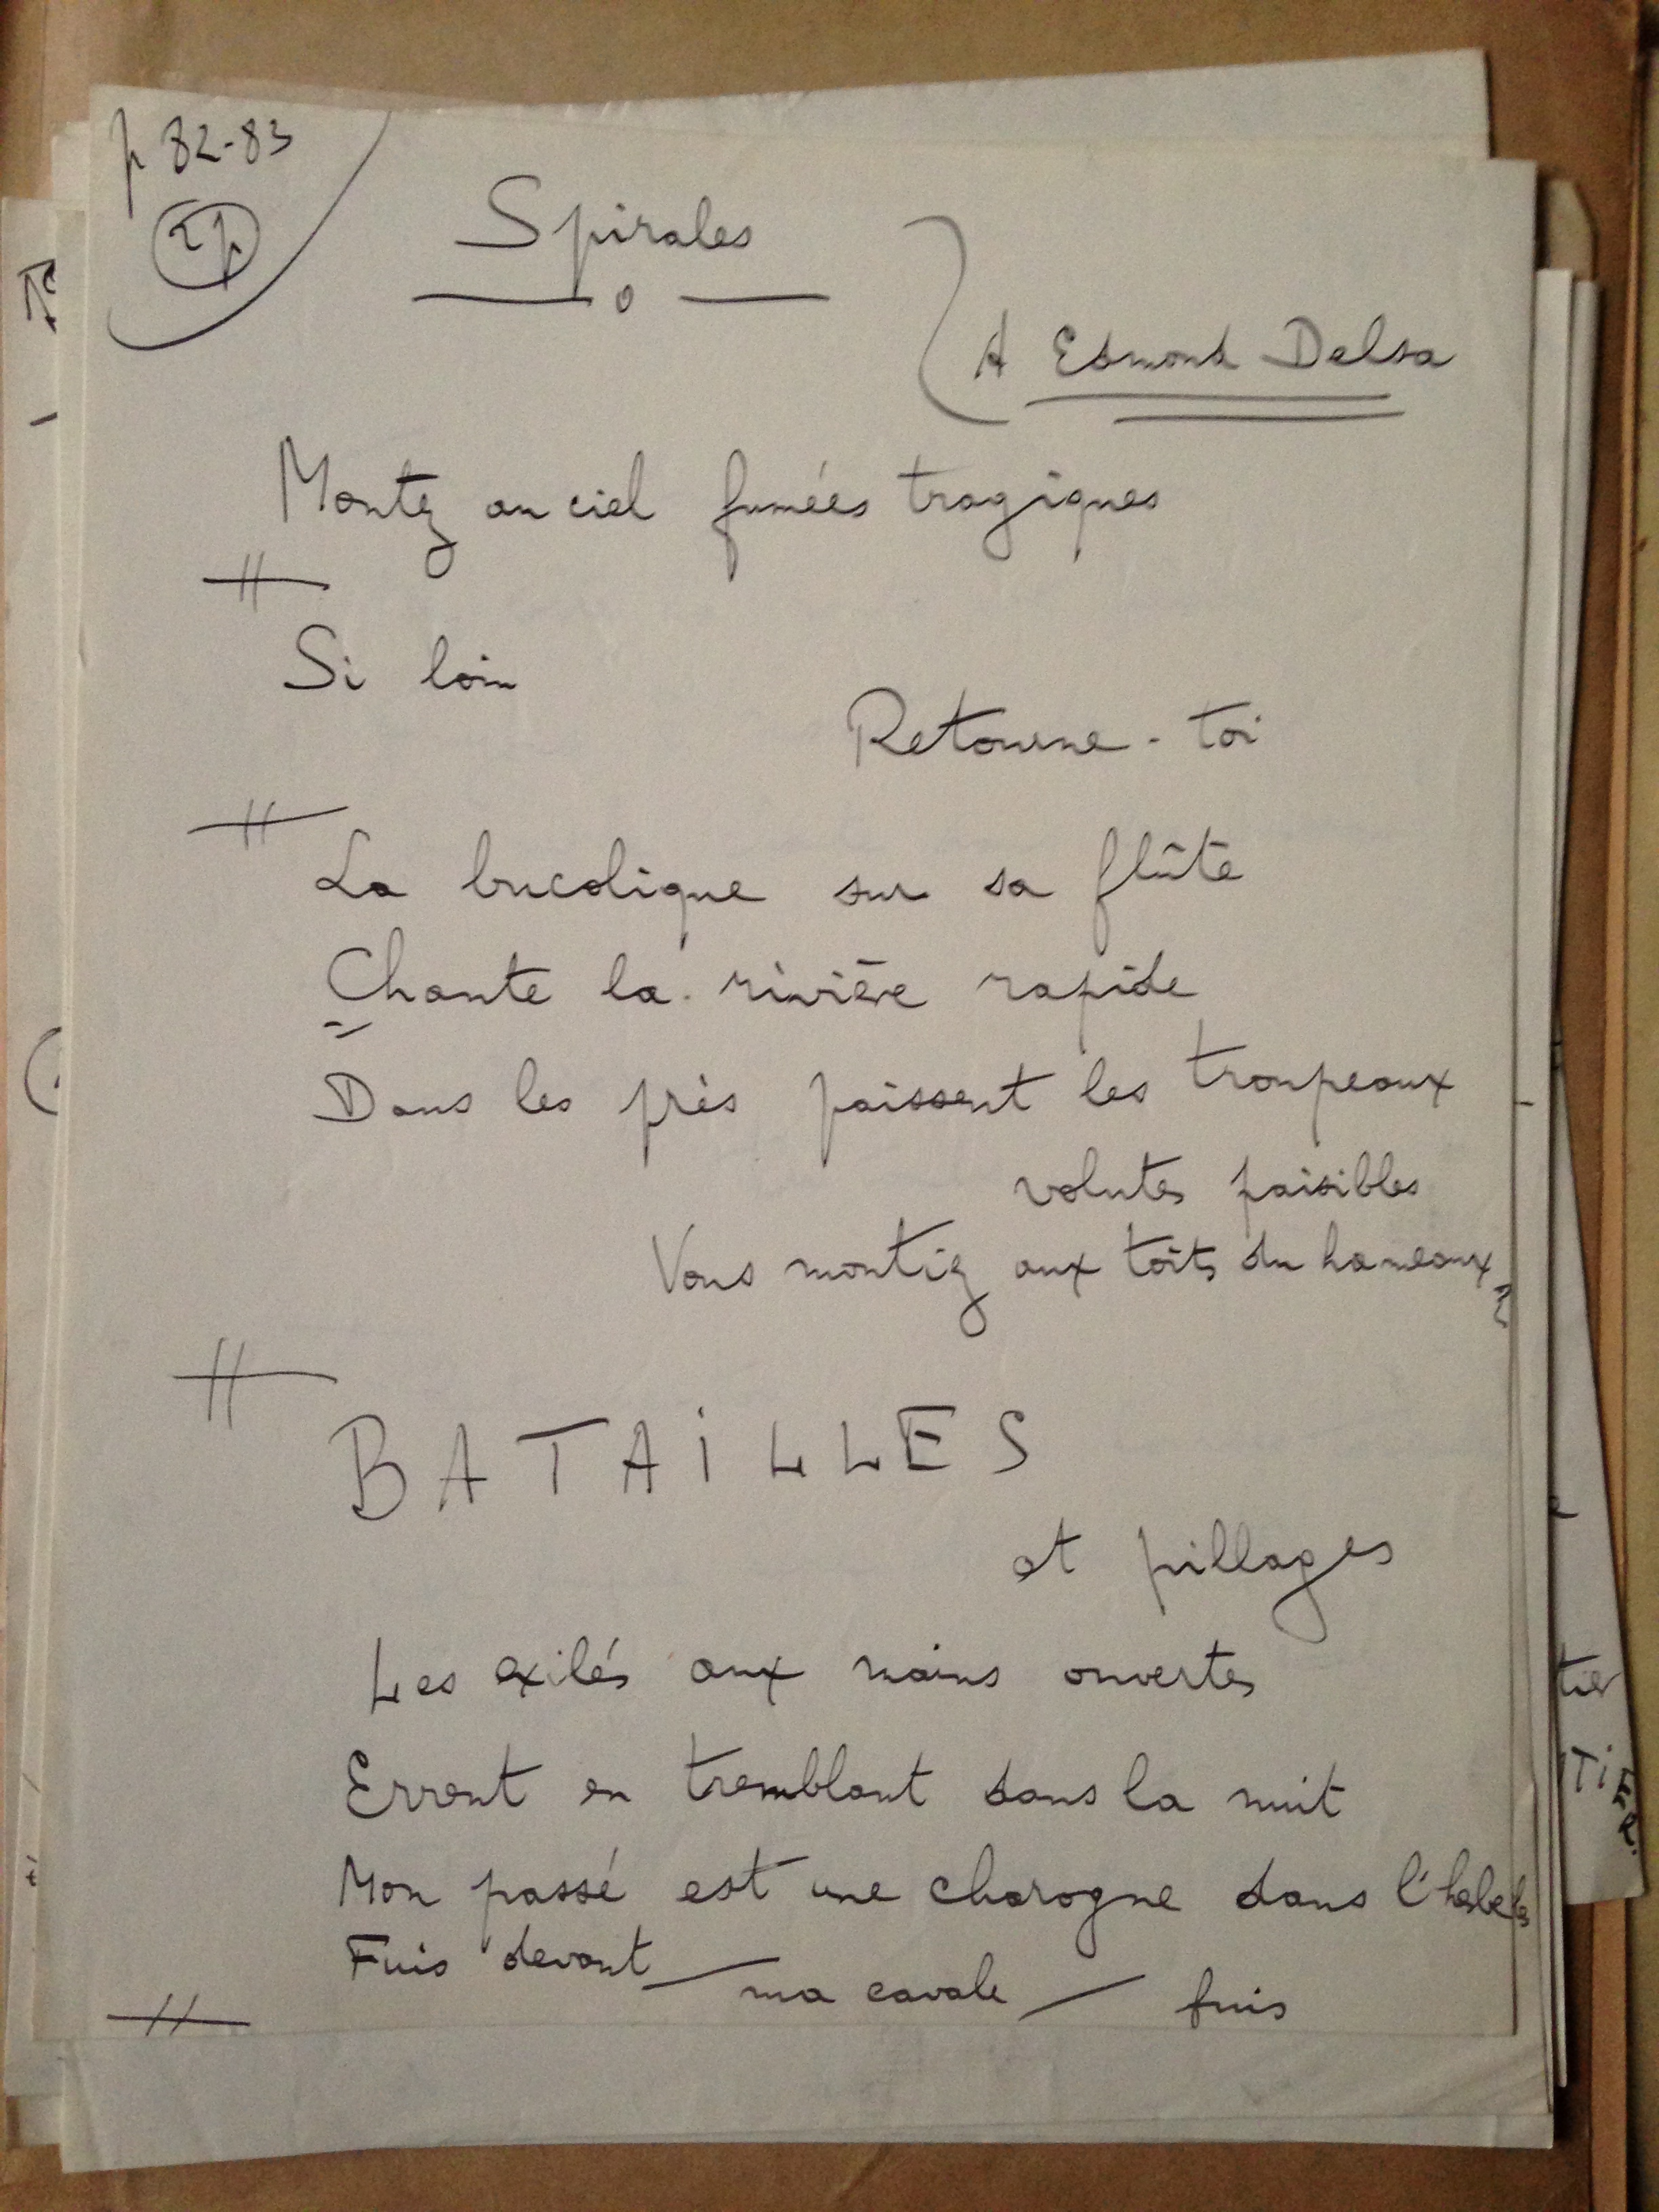 p 82-83
2p
Spirales
A Edmont Delsa
Montez au ciel fumées tragiques
#
Si loin
Retourne-toi
#
La bucolique sur sa flûte
Chante la rivière rapide
Dans les prés paissent les troupeaux
volutes paisibles
Vous montiez aux toits du hameaux
#
BATAiLLES
et pillages
Les exilés aux mains ouvertes
Errent en tremblant dans la nuit
Mon passé est une charogne dans l'
Fuis devant / ma cavale / fuis
#